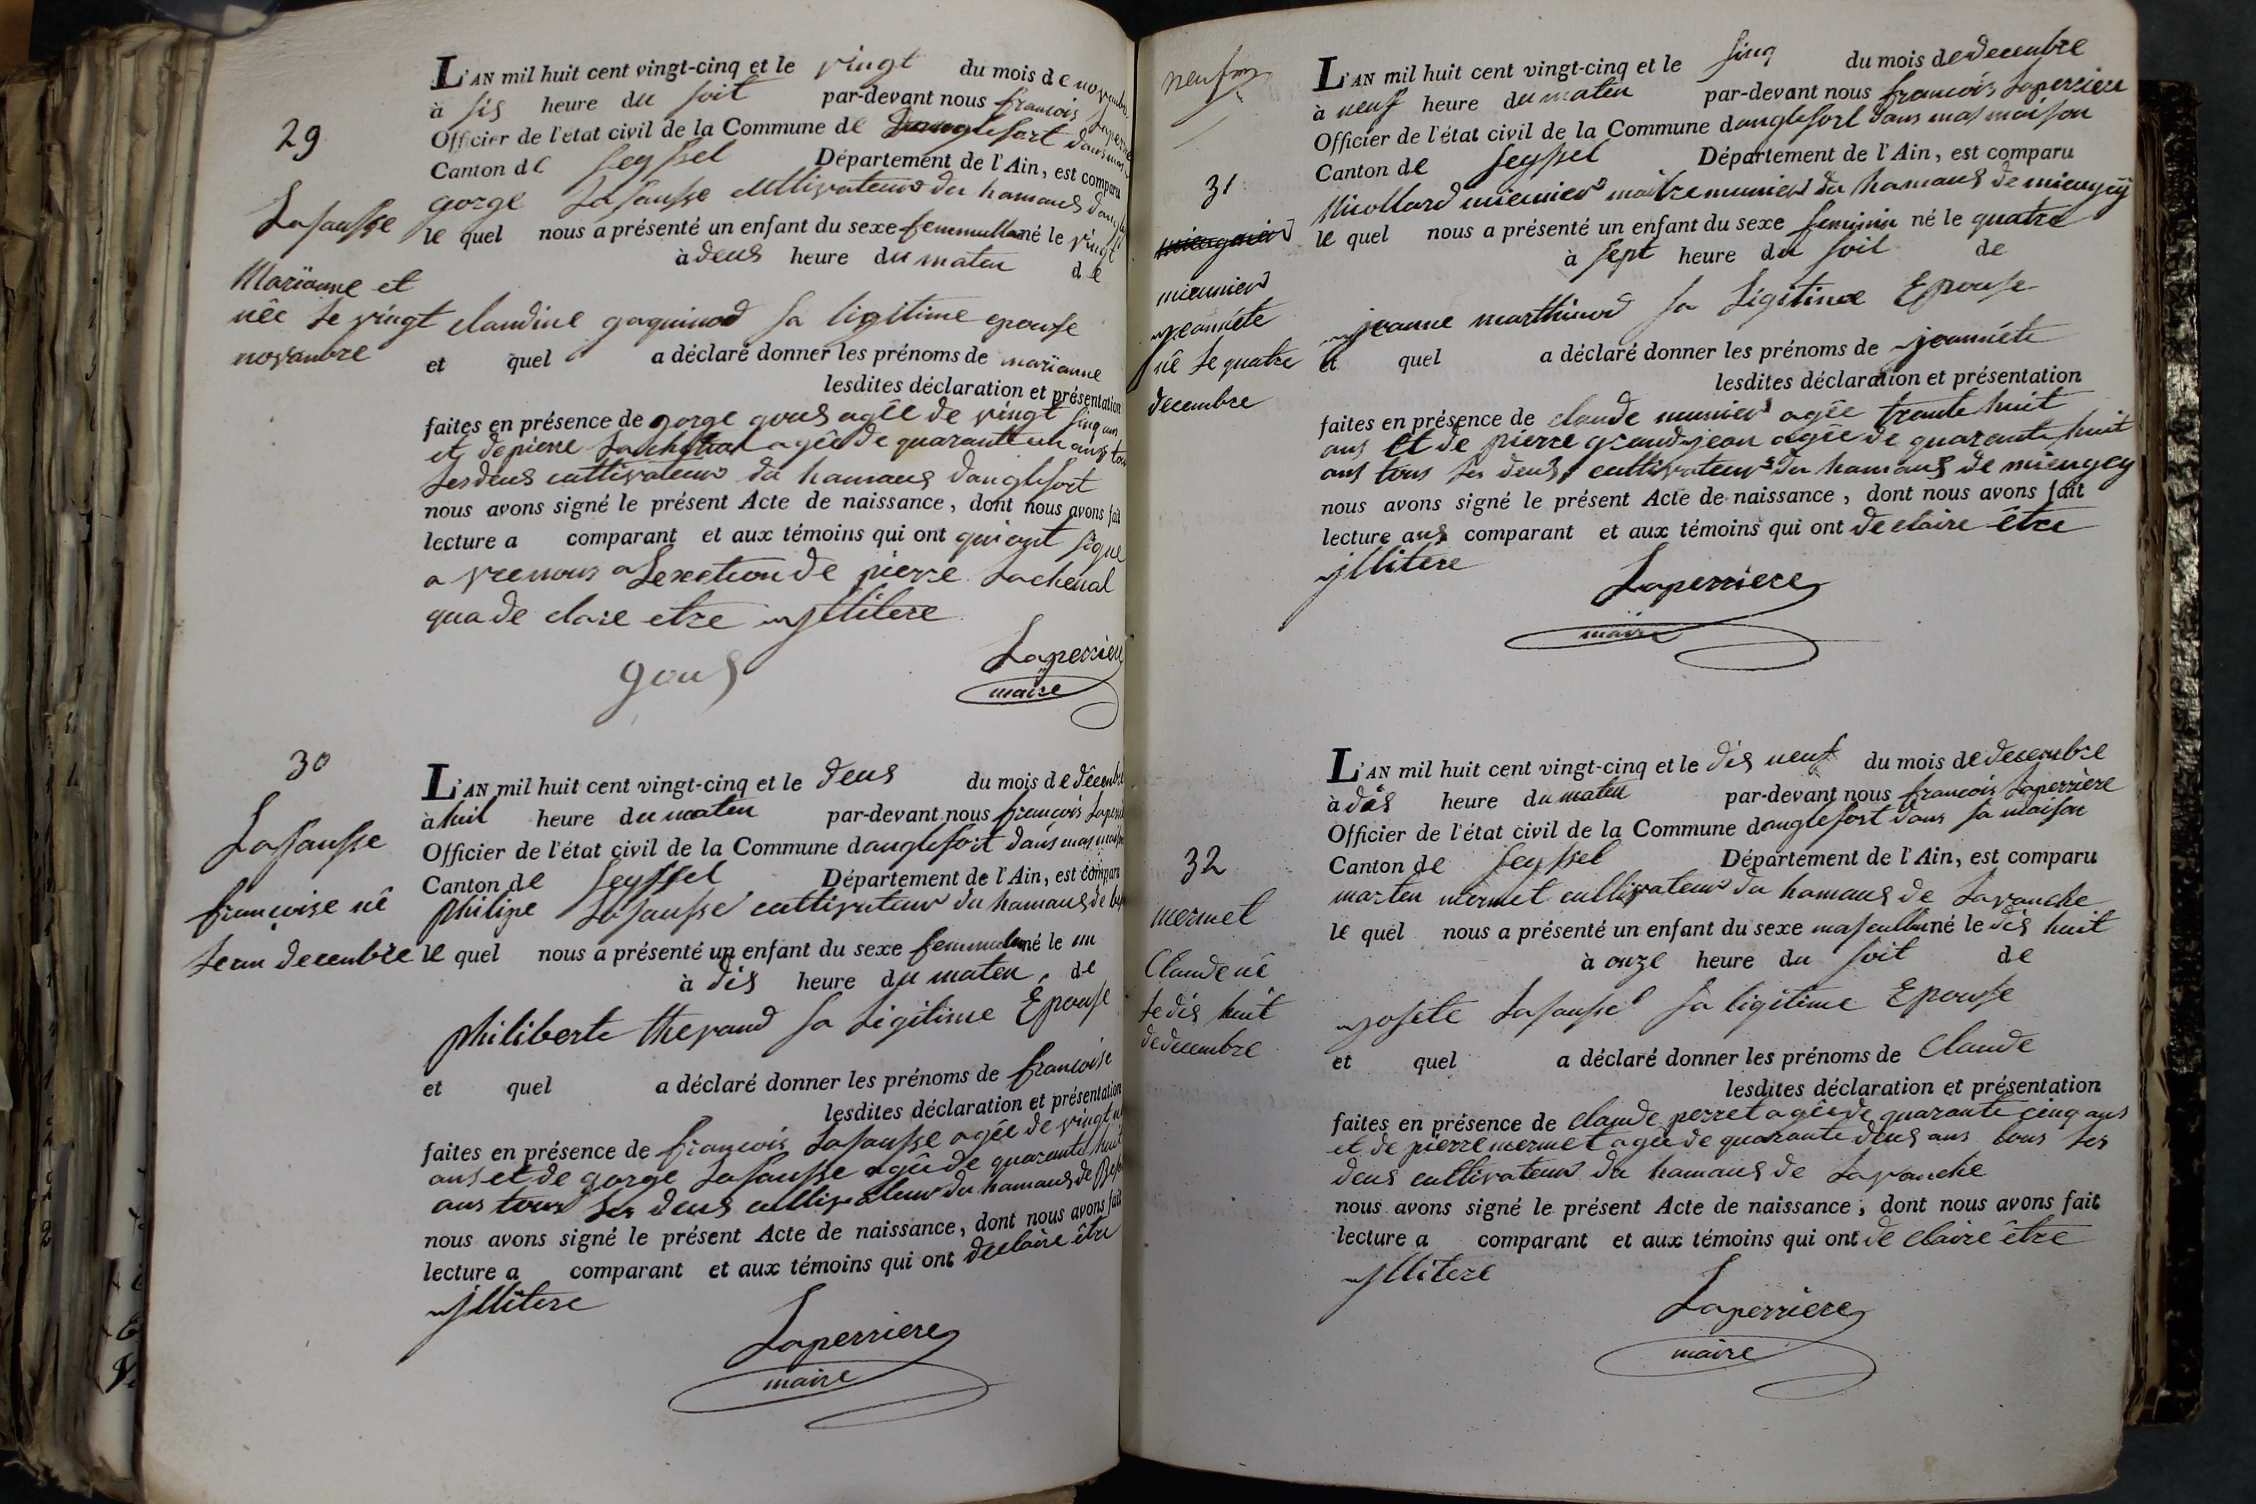 29
Lasausse
Marianne et
née le vingt
novanbre
L'AN mil huit cent vingt-cinq et le vingt du mois de novanbre
à sis heure du soit par-devant nous francois
Officier de l'état civil de la Commune de danglefort dans
Canton de Seyssel Département de l'Ain, est comparu
gorge Lasausse cultivateur du hamaus
le quel nous a présenté un enfant du sexe né le vingt
à deus heure du maten de
claudine gaquinod sa ligitime epouse
et quel a déclaré donner les prénoms de marianne
lesdites déclaration et présentation
faites en présence de gorge gous agée de vingt sinq ans
et de pierre Lachenal agée de quarante un ans tous
les deus cultivateur du hamaus danglefort
nous avons signé le présent Acte de naissance, dont nous avons fait
lecture a comparant et aux témoins qui ont qui ont signe
a vecnous a Lexection de pierre Lachenal
qua de clare etre illitere
gous
Laperriere
maire
30
Lasausse
francoise né
le un decenbre
L'AN mil huit cent vingt-cinq et le deus du mois de décenbre
à huit heure du maten par-devant nous francois
Officier de l'état civil de la Commune danglefort dans mas maison
Canton de Seyssel Département de l'Ain, est comparu
philipe Lasausse cultivateur du hamaus de
le quel nous a présenté un enfant du sexe né le un
à dis heure du maten, de
philiberte thevand sa Ligitime Epouse
et quel a déclaré donner les prénoms de francoise
lesdites déclaration et présentation
faites en présence de francois Lasausse agée de vingt
ans et de gorge Lasausse agée de quarante huit
ans tous les deus cultivateur du hamaus de
nous avons signé le présent Acte de naissance, dont nous avons fait
lecture a comparant et aux témoins qui ont declaire être
illitere
Laperriere
maire
31
mieunier
jeanniete
né le quatre
decembre
L'AN mil huit cent vingt-cinq et le sinq du mois de decenbre
à neuf heure du maten par-devant nous francois Laperriere
Officier de l'état civil de la Commune danglefort dans mas maison
Canton de Seyssel Département de l'Ain, est comparu
Nicollard mieunier maitre munier du hamaus de miengey
le quel nous a présenté un enfant du sexe feminin né le quatre
à sept heure du soit de
jeanne marthinod sa Ligitime Epouse
et quel a déclaré donner les prénoms de jeanniete
lesdites déclaration et présentation
faites en présence de claude munier agée trante huit
ans et de pierre grandjean agée de quarante huit
ans tous les deus cultivateur du hamaus de miengey
nous avons signé le présent Acte de naissance, dont nous avons fait
lecture aus comparant et aux témoins qui ont declaire être
illitere
Laperriere
maire
32
mermet
Claude né
le dis huit
dedecembre
L'AN mil huit cent vingt-cinq et le dis neuf du mois de decenbre
à dis heure du maten par-devant nous francois Laperriere
Officier de l'état civil de la Commune danglefort dans sa maison
Canton de Seyssel Département de l'Ain, est comparu
marten mermet cultivateur du hamaus de Lavanche
le quel nous a présenté un enfant du sexe masculin né le dis huit
à onze heure du soit de
josete Lasausse sa ligitime Epouse
et quel a déclaré donner les prénoms de Claude
lesdites déclaration et présentation
faites en présence de claude perret agée de quarante cinq ans
et de pierre mermet agée de quarante deus ans tous les
deus cultivateur du hamaus de Lavanche
nous avons signé le présent Acte de naissance, dont nous avons fait
lecture a comparant et aux témoins qui ont de claire être
illitere
Laperriere
maire